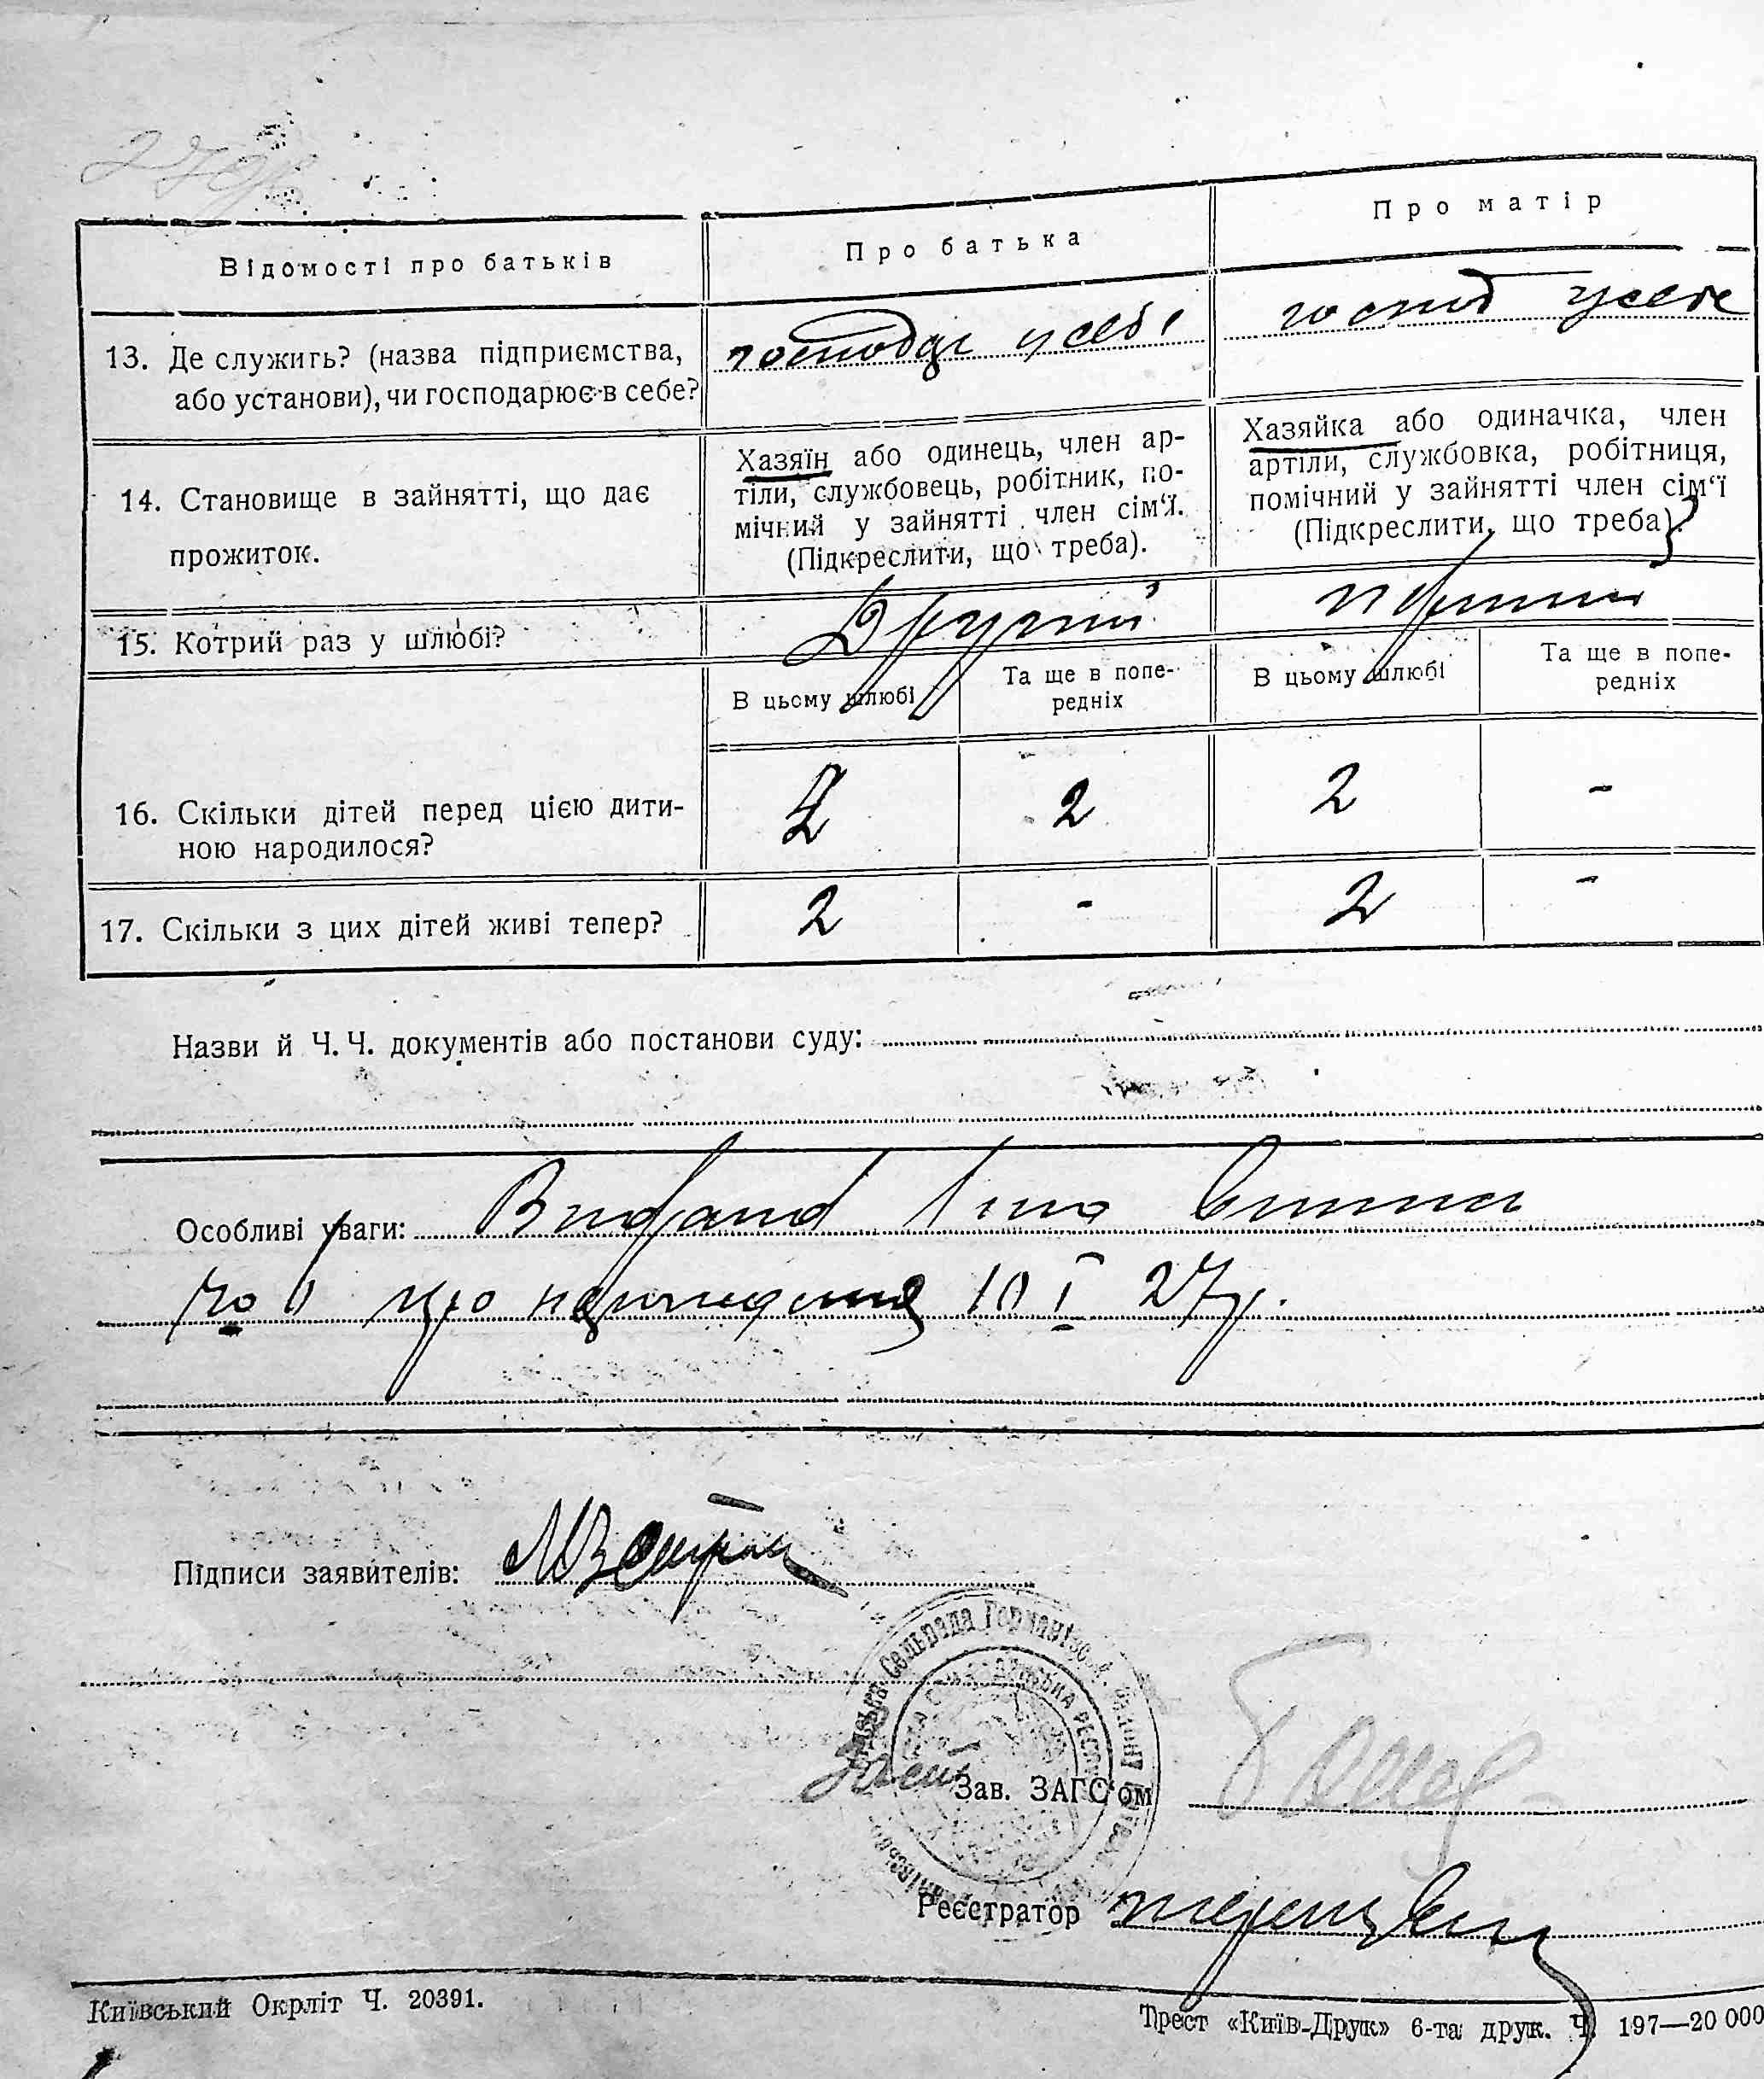 Відомості про батьків
Про батька
Про матір
13. Де служить? (назва підприємства,
або установи), чи господарює в себе?
господар у себе
господ у себе
14. Становище в зайнятті, що дає
прожиток.
Хазяїн або одинець, член ар-
тіли, службовець, робітник, по-
мічний у зайнятті член сім'ї.
(Підкреслити, що треба).
Хазяйка або одиначка, член
артіли, службовка, робітниця,
помічний у зайнятті член сім'ї
(Підкреслити, що треба).
15. Котрий раз у шлюбі?
Другий
перший
В цьому шлюбі
Та ще в попе-
редніх
В цьому шлюбі
Та ще в попе-
редніх
16. Скільки дітей перед цією дити-
ною народилося?
2
2
2
-
17. Скільки з цих дітей живі тепер?
2
-
2
-
Назви й Ч. Ч. документів або постанови суду:
Особливі уваги:
про народження 10 I 27р.
Підписи заявителів:
Зав. ЗАГС'ом
Реєстратор
Київський Окрліт Ч. 20391.
Трест «Київ-Друк» 6-та друк. Ч. 197—20 000